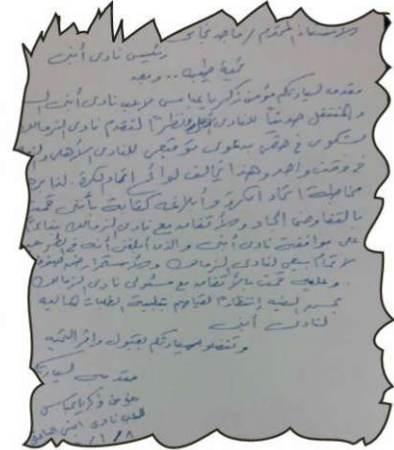 الأستاذ المحترم / ماجد نجاتى
رئيس نادى أنبى
تحية طيبة .. وبعد
مقدمه لسيادتكم مؤمن زكريا عباس لاعب نادى أنبى
والمنتقل حديثاً للنادى نظراً لتقدم نادى الزمالك
بشكوى فى حقى بدعوى توقيعى للنادى الأهلى
فى وقت واحد وهذا يخالف لوائح اتحاد الكرة
مخاطبة اتحاد الكرة وأبلاغه كتابة بأننى قمت
بالتفاوض الجاد والأتفاق مع نادى الزمالك بناءاً
على موافقة نادى أنبى والذى أبلغنى أنه فى
لأتمام بيعى لنادى الزمالك
وعليه قمت بالأتفاق مع مسئولى نادى الزمالك
إنتظاراً لقيامهم بتلبية الطلبات المالية
لنادى أنبى
وتفضلوا سيادتكم بقبول وافر التحية
مقدمه لسيادتكم
مؤمن زكريا عباس
لاعب نادى انبى